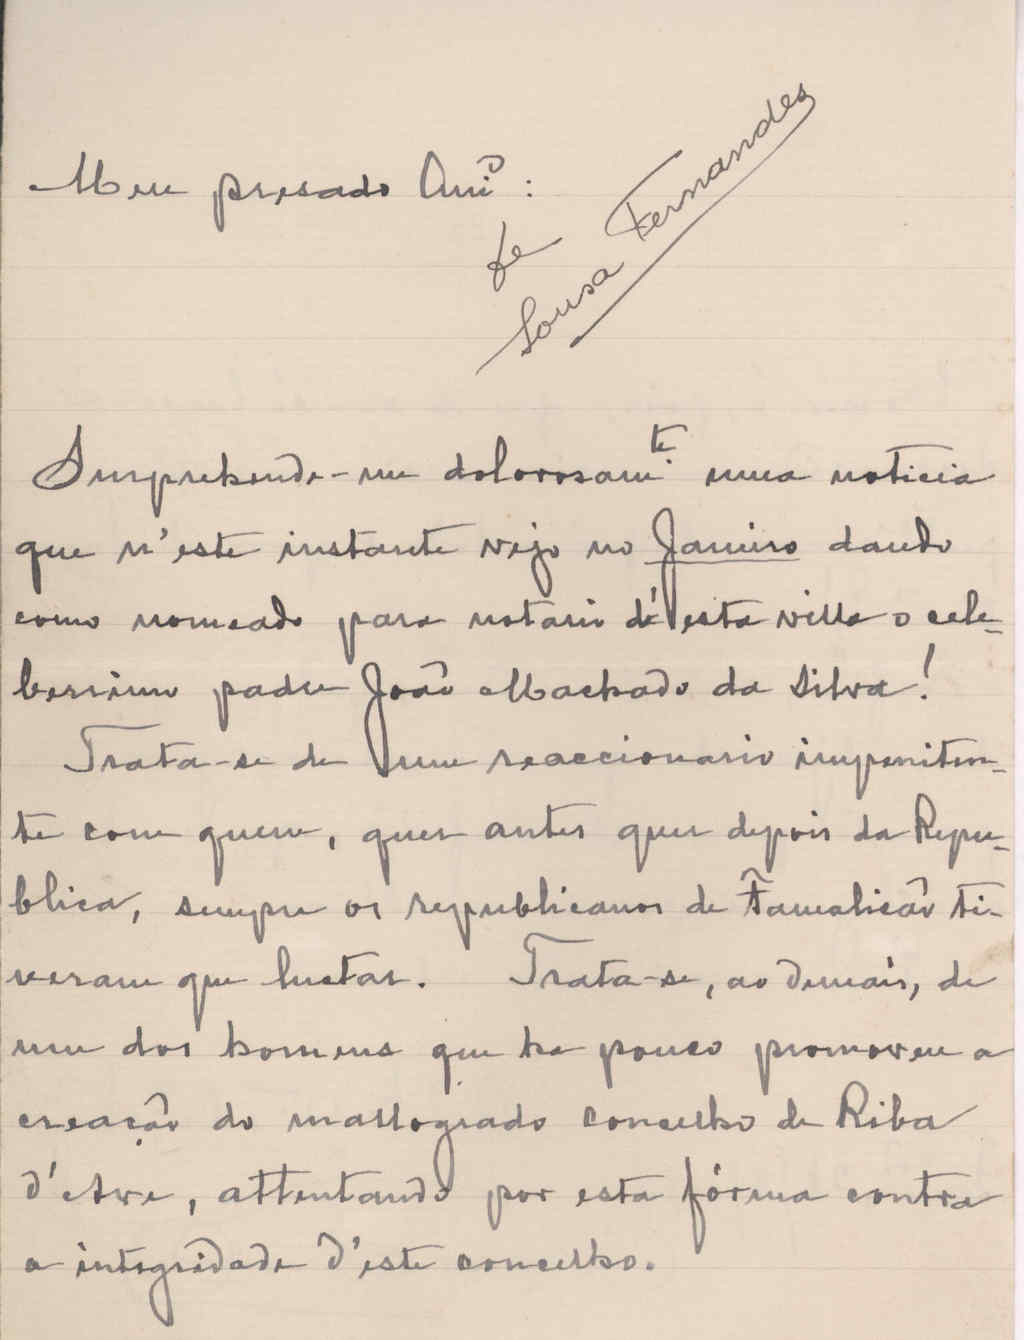 Meu presado Amº:
de
Sousa Fernandes
Surprehende-me dolorosamte uma noticia
que n'este instante vejo no Janeiro dando
como nomeado para notario d'esta villa o cele-
berrimo padre João Machado da Silva!
Trata-se de um reaccionario impeniten-
te com quem, quer antes quer depois da Repu-
blica, sempre os republicanos de Famalicão ti-
veram que luctar. Trata-se, ao demais, de
um dos homens que ha pouco promoveu a
creação do mallogrado concelho de Riba
d'Ave, attentando por esta fórma contra
a integridade d'este concelho.